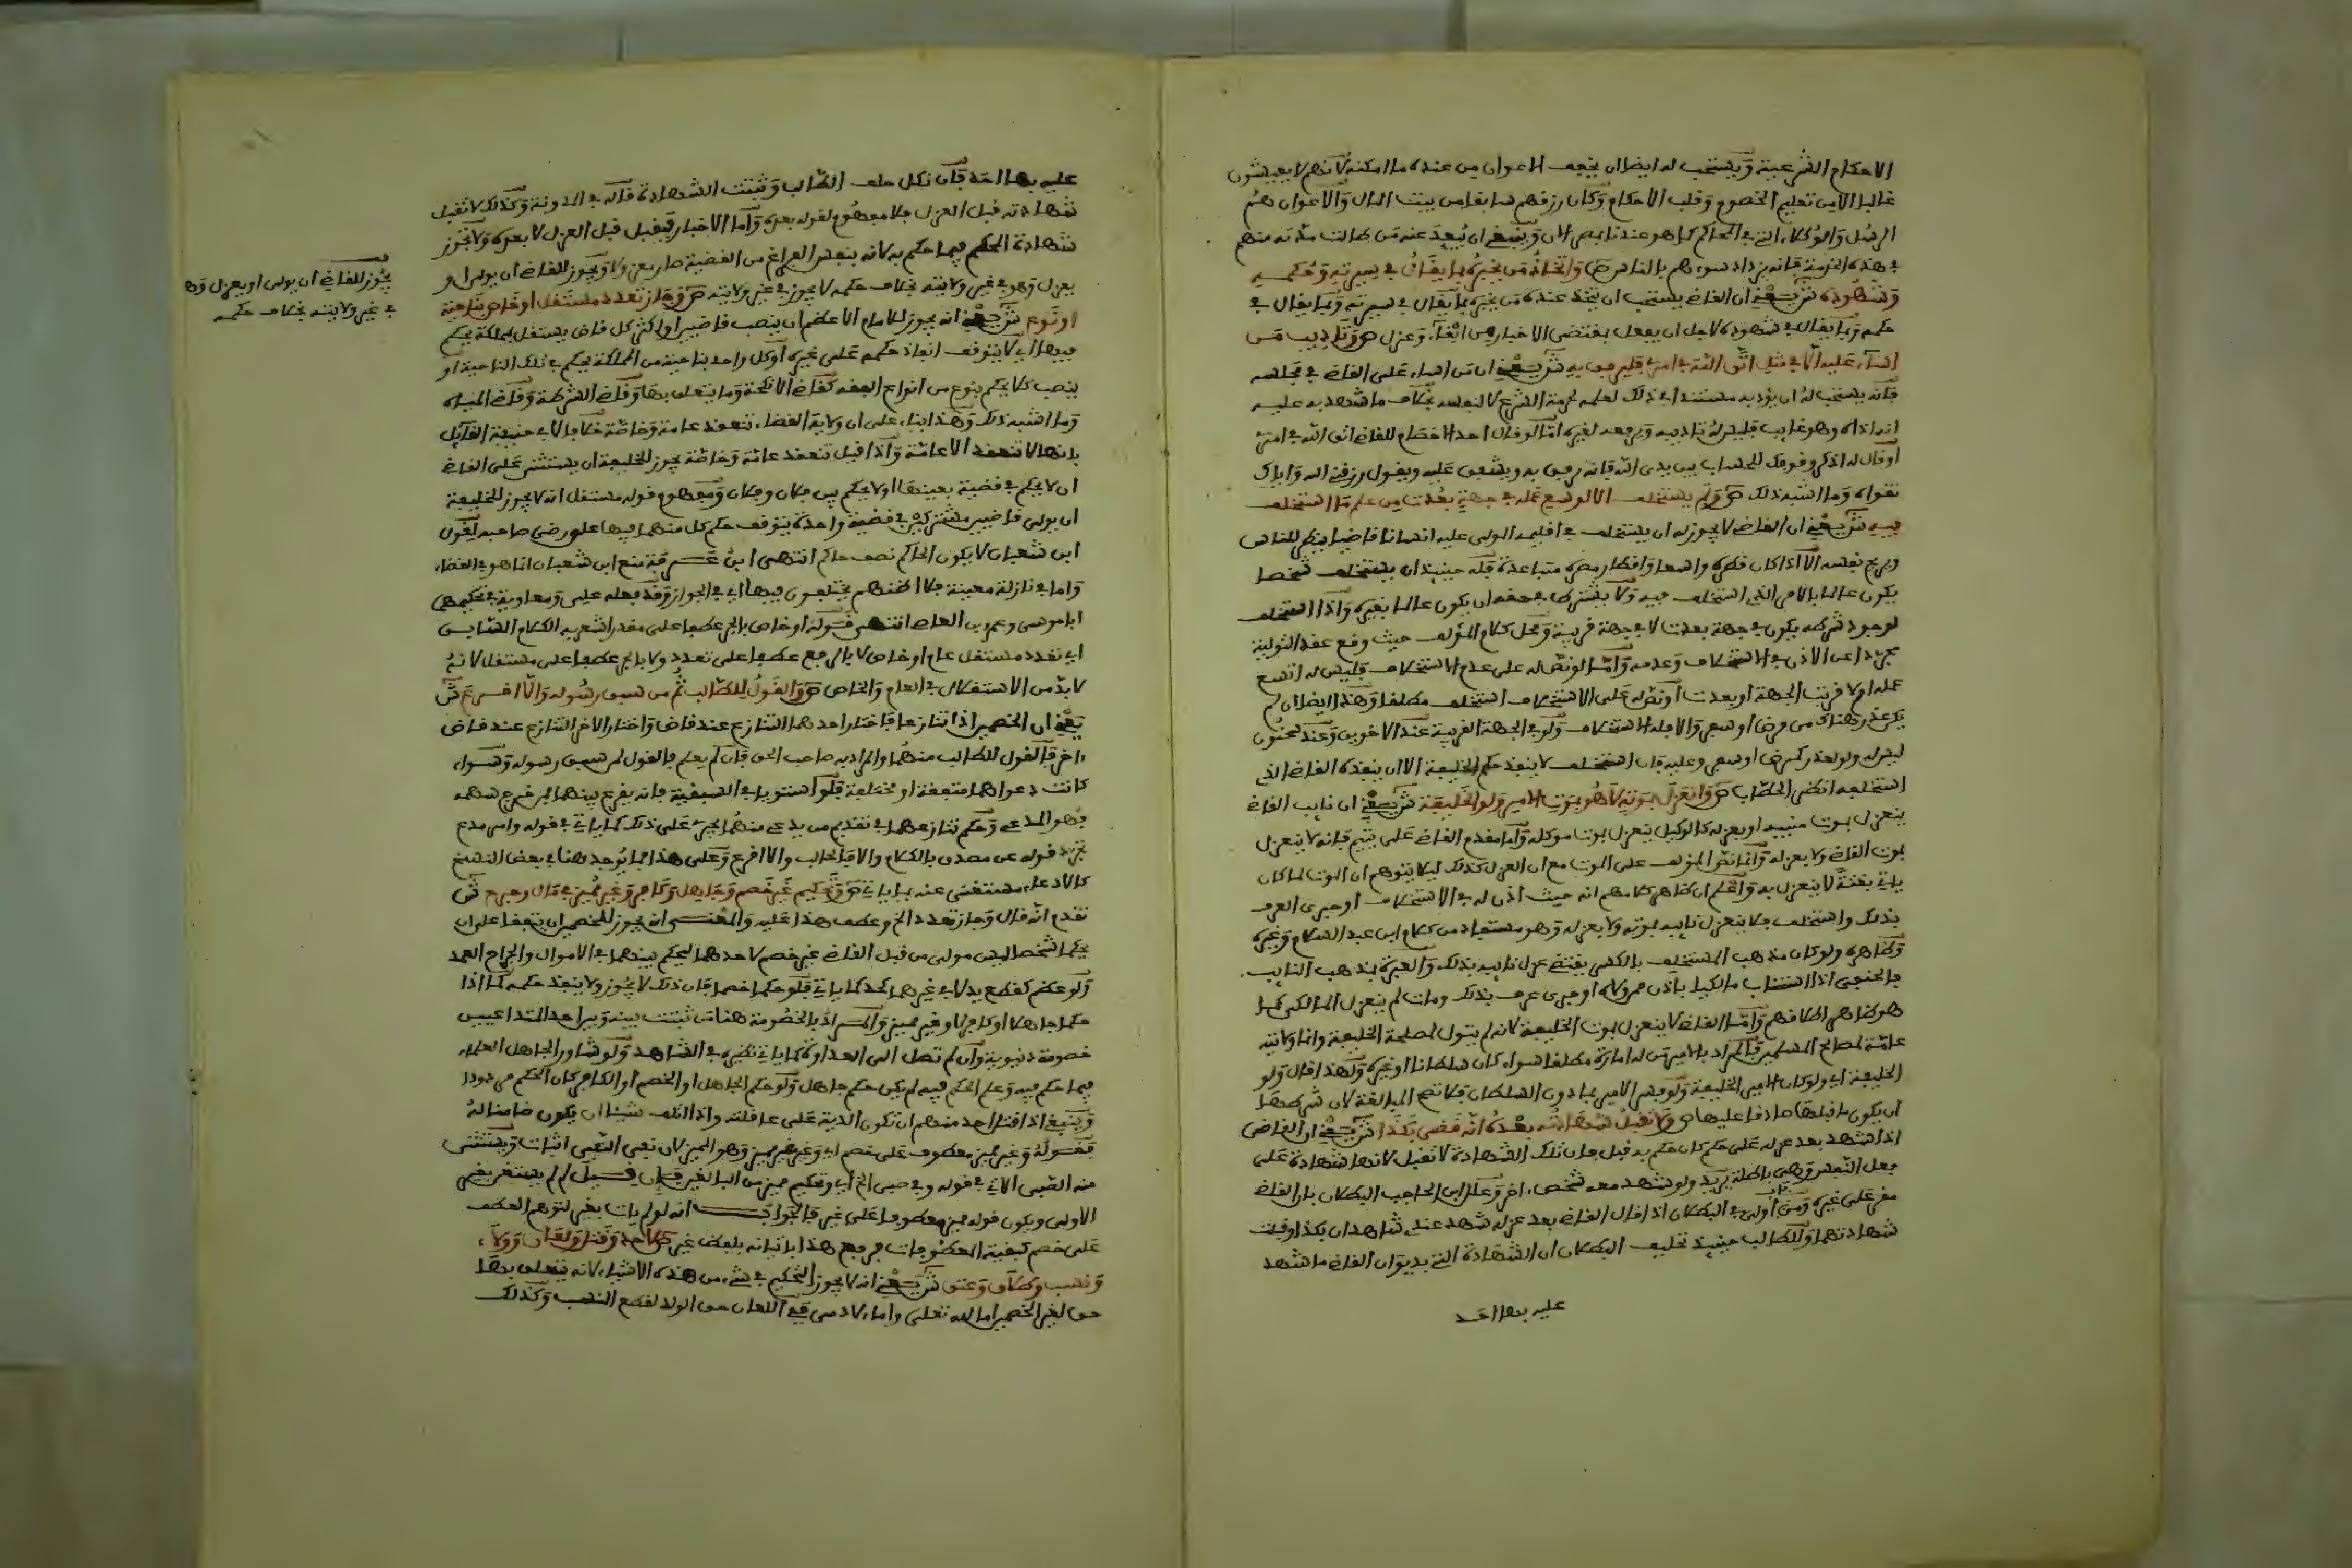 الاحكام الشرعية ويستحب له ايضا ان يخفف الاعوان من عنده ما امكنه لانهم لا يعيشون
غالبا الا من تعليم الخصوم وقلب الاحكام وكان رزقهم سابقا من بيت المال والاعوان هم
الرسل والوكلاء التي في الحاكم كما هو عندنا بمصر الان وينبغي ان يبعد عنه من طالت مدته منهم
في هذه الخدمة فانه يزداد سوءهم بالناس ص واتخاذ من يخبره بما يقال في سيرته وحكمه
وشهوده ش يعني ان القاضي يستحب ان يتخذ عنده من يخبره بما يقال في سيرته وبما يقال في
حكمه وبما يقال في شهوده لاجل ان يفعل بمقتضى الاخبار من ابقاء وعزل ص وتاديب من
اساء عليه الا في مثل اتق الله في امري فليرفق به ش يعني ان من اساء على القاضي في مجلسه
فانه يستحب له ان يؤدبه مستندا في ذلك لعلمه لحرمة الشرع لا لنفسه بخلاف ما شهد به عليه
انه اذاه وهو غايب فليس له تاديبه ويرفعه لغيره اما لو قال احد الاخصام للقاضي اتق الله في امري
او قال له اذكر وقوفك للحساب بين يدي الله فانه يرفق به ويشفق عليه ويقول رزقني الله واياك
تقواه وما اشبه ذلك ص ولم يستخلف الا لوسع عمله في جهة بعدت من علم ما استخلف
فيه ش يعني ان القاضي لا يجوز له ان يستخلف في اقليمه المولى عليه انسانا قاضيا ينظر للناس
ويريح نفسه الا اذا كان قطره واسعا واقطار مصره متباعدة فله حينيذ ان يستخلف شخصا
يكون عالما بالامر الذي استخلف فيه ولا يشترط في حقه ان يكون عالما بغيره واذا استخلف
لوجود شرطه يكون في جهة بعدت لا في جهة قريبة ومحل كلام المؤلف حيث وقع عقد التولية
مجردا عن الاذن في الاستخلاف وعدمه واما لو نص له على عدم الاستخلاف فليس له اتسع
عمله اولا قربت الجهة او بعدت او نص له على الاستخلاف استخلف مطلقا وهذا ايضا ان لم
يكن عذر هناك من مرض او سفر والا فله الاستخلاف ولو في الجهة القريبة عند الاخوين وعند سحنون
ليس له ولو لعذر كمرض او سفر وعليه فان استخلف لا ينفذ حكم الخليفة الا ان ينفذه القاضي الذي
استخلفه انظر الحطاب ص وانعزل بموته لا هو بموت الامير ولو الخليفة ش يعني ان نايب القاضي
ينعزل بموت منيبه او بعزله كالوكيل ينعزل بموت موكله واما مقدم القاضي على يتيم فانه لا ينعزل
بموت القاضي ولا بعزله وانما نص المؤلف على الموت مع ان العزل كذلك ليلا يتوهم ان الموت لما كان
ياتي بغتة لا ينعزل به واعلم ان ظاهر كلامهم انه حيث اذن له في الاستخلاف او جرى العرف
بذلك واستخلف فلا ينعزل نايبه بموته ولا بعزله وهو مستفاد من كلام ابن عبد السلام وغيره
وظاهره ولو كان مذهب المستخلف بالكسر يقتضي عزل نايبه بذلك والعبرة بمذهب النايب.
فالحنفي اذا استناب مالكيا باذن من ولاه او جرى عرف بذلك ومات لم ينعزل المالكي كما
هو ظاهر اطلاقهم واما القاضي فلا ينعزل بموت الخليفة لانه لم يتول لمصلحة الخليفة وانما ولايته
عامة لمصالح المسلمين فالمراد بالامير من له امارة مطلقا سواء كان سلطانا او غيره ولهذا قال ولو
الخليفة اي ولو كان الامير الخليفة ولو فسر الامير بما دون السلطان فلا تصح المبالغة لان شرطها
ان يكون ما قبلها صادقا عليها ص ولا تقبل شهادته بعده انه قضى بكذا ش يعني ان القاضي
اذا شهد بعد عزله على حكم كان حكم به قبل فان تلك الشهادة لا تقبل لانها شهادة على
فعل النفس وهي باطلة يريد ولو شهد معه شخص اخر وعلل ابن الحاجب البطلان بان القاضي
مقر على غيره ومن اولى في البطلان اذا قال القاضي بعد عزله شهد عندي شاهدان بكذا وقبلت
شهادتهما وللطالب حينيذ تحليف المطلوب ان الشهادة التي بديوان القاضي ما شهد
عليه بها احد
عليه بها احد فان نكل حلف الطالب وثبتت الشهادة قاله في المدونة وكذلك لا تقبل
شهادته قبل العزل فلا مفهوم لقوله بعده واما الاخبار فيقبل قبل العزل لا بعده ولا تجوز
شهادة الحكم فيما حكم به لانه بنفس الفراغ من القضية صار معزولا ويجوز للقاضي ان يولي او
يعزل وهو في غير ولايته بخلاف حكمه لا يجوز في غير ولايته ص وجاز تعدد مستقل او خاص بناحية
او نوع ش يعني انه يجوز للامام الاعظم ان ينصب قاضيين او اكثر كل قاض يستقل بمملكة يحكم
فيها اي لا يتوقف انفاذ حكمه على غيره او كل واحد بناحية من المملكة يحكم في تلك الناحية او
ينصب كلا يحكم بنوع من انواع الفقه كقاضي الانكحة وما يتعلق بها وقاضي الشرطة وقاضي المياه
وما اشبه ذلك وهذا بناء على ان ولاية القضاء تنعقد عامة وخاصة خلافا لابي حنيفة القايل
بانها لا تنعقد الا عامة واذا قيل تنعقد عامة وخاصة يجوز للخليفة ان يستثني على القاضي
ان لا يحكم في قضية بعينها او لا يحكم بين فلان وفلان ومفهوم قوله مستقل انه لا يجوز للخليفة
ان يولي قاضيين مشتركين في قضية واحدة يتوقف حكم كل منهما فيها على رضى صاحبه لقول
ابن شعبان لا يكون الحاكم نصف حاكم انتهى ابن عرفة منع ابن شعبان انما هو في القضاء
واما في نازلة معينة فلا اظنهم يختلفون فيها اي في الجواز وقد فعله علي ومعاوية في تحكيمهما
ابا موسى وعمرو بن العاص انتهى قوله او خاص بالجر عطفا على مقدر اشعر به الكلام السابق
اي تعدد مستقل عام او خاص لا بالرفع عطفا على تعدد ولا بالجر عطفا على مستقل لانه
لا بد من الاستقلال في العام والخاص ص والقول للطالب ثم من سبق رسوله والا اقرع ش
يعني ان الخصمين اذا تنازعا فاختار احدهما التنازع عند قاض واختار الاخر التنازع عند قاض
اخر فالقول للطالب منهما والمراد به صاحب الحق فان لم يعلم فالقول لمن سبق رسوله وسواء
كانت دعواهما متفقة او مختلفة فلو استويا في السبقية فانه يقرع بينهما فمن خرج سهمه
فهو المدعي وحكم تنازعهما في تقديم من يدعي منهما يجري على ذلك كما ياتي في قوله وامر مدع
تجرد قوله عن مصدق بالكلام والا فالجالب والا اقرع وعلى هذا فما يوجد هنا في بعض النسخ
كالادعاء مستغنى عنه بما ياتي ص وتحكيم غير خصم وجاهل وكافر وغير مميز في مال وجرح ش
تقدم انه قال وجاز تعدد الخ وعطف هذا عليه والمعنى انه يجوز للخصمين ان يتفقا على ان
يحكما شخصا ليس مولى من قبل القاضي غير خصم لاحدهما ليحكم بينهما في الاموال والجراح العمد
ولو عظم كقطع يد لا في غيرهما كحد كما ياتي فلو حكما خصما فان ذلك لا يجوز ولا ينفذ حكمه كما اذا
حكما جاهلا او كافرا او غير مميز والمراد بالخصومة هنا من ثبتت بينه وبين احد المتداعيين
خصومة دنيوية وان لم تصل الى العداوة كما ياتي نظيره في الشاهد ولو شاور الجاهل العلماء
فيما حكم فيه وعلم الحكم فيه لم يكن حكم جاهل ولو حكم الجاهل او الخصم او الكافر كان الحكم مردودا
وينبغي اذا قتل احد منهم ان تكون الدية على عاقلته واذا اتلف شيئا ان يكون ضامنا له
فقوله وغير مميز معطوف على خصم اي وغير غير مميز وهو المميز لان نفي النفي اثبات ويستثنى
منه الصبي الاتي في قوله وفي صبي الخ اي وتحكيم مميز من البالغين فان قيل لم لم يستغن بغير
الاولى ويكون قوله مميز معطوفا على غير فالجواب انه لو لم يات بغير لتوهم العطف
على خصم كبقية المعطوفات فرفع هذا باتيانه بلفظ غير ص لا حد وقتل ولعان وولاء
ونسب وطلاق وعتق ش يعني انه لا يجوز التحكيم في شيء من هذه الاشياء لانه يتعلق بها
حق لغير الخصمين اما لله تعالى واما لادمي ففي اللعان حق الولد لقطع النسب وكذلك
يجوز للقاضي ان يولي او يعزل وهو
في غير ولايته بخلاف حكمه